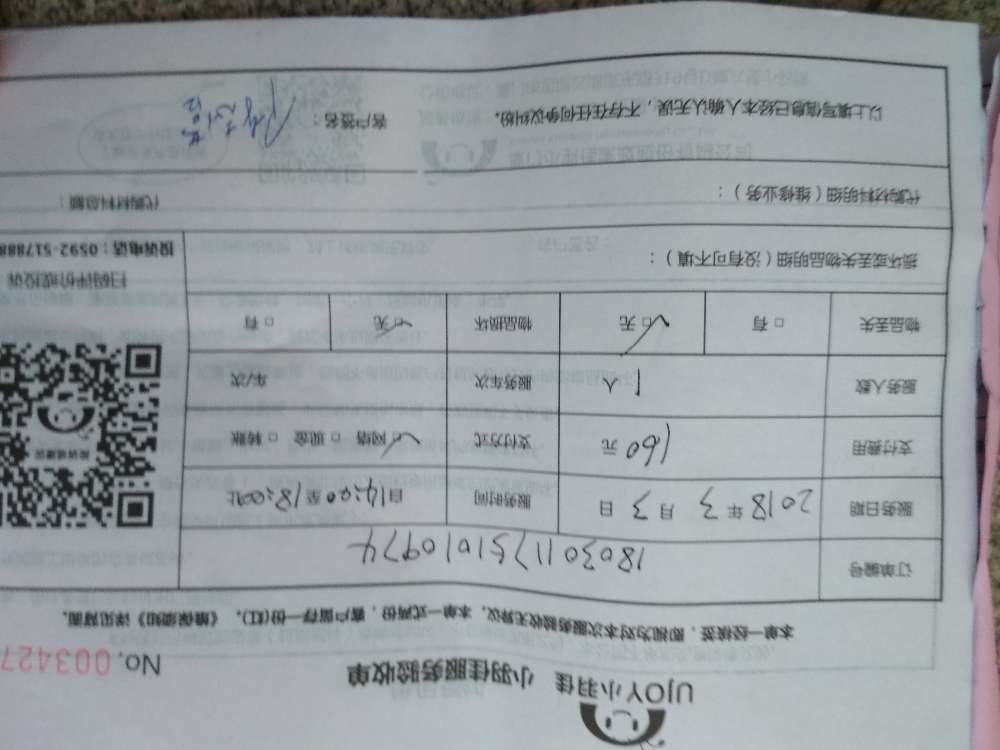 UJOY小羽佳 小羽佳服务验收单
No. 003427
本单一经核签，即视为对本次服务验收无异议。本单一式两份，客户留存一份(红)。《维保须知》详见背面。
订单编号 1803011751010974
服务日期 2018年3月3日 服务时间 自14:00至18:00止
支付费用 160元 支付方式 ☑网络 □现金 □转账
服务人数 1人 服务车次 车/次
物品丢失 □有 ☑无 物品损坏 ☑无 □有
投诉或建议
扫码评价或投诉
投诉电话：0592-517888
损坏或丢失物品明细（没有可不填）：
代购材料明细（维修业务）： 代购材料总额：
以上填写信息已经本人确认无误，不存在任何争议纠纷。 客户签名：